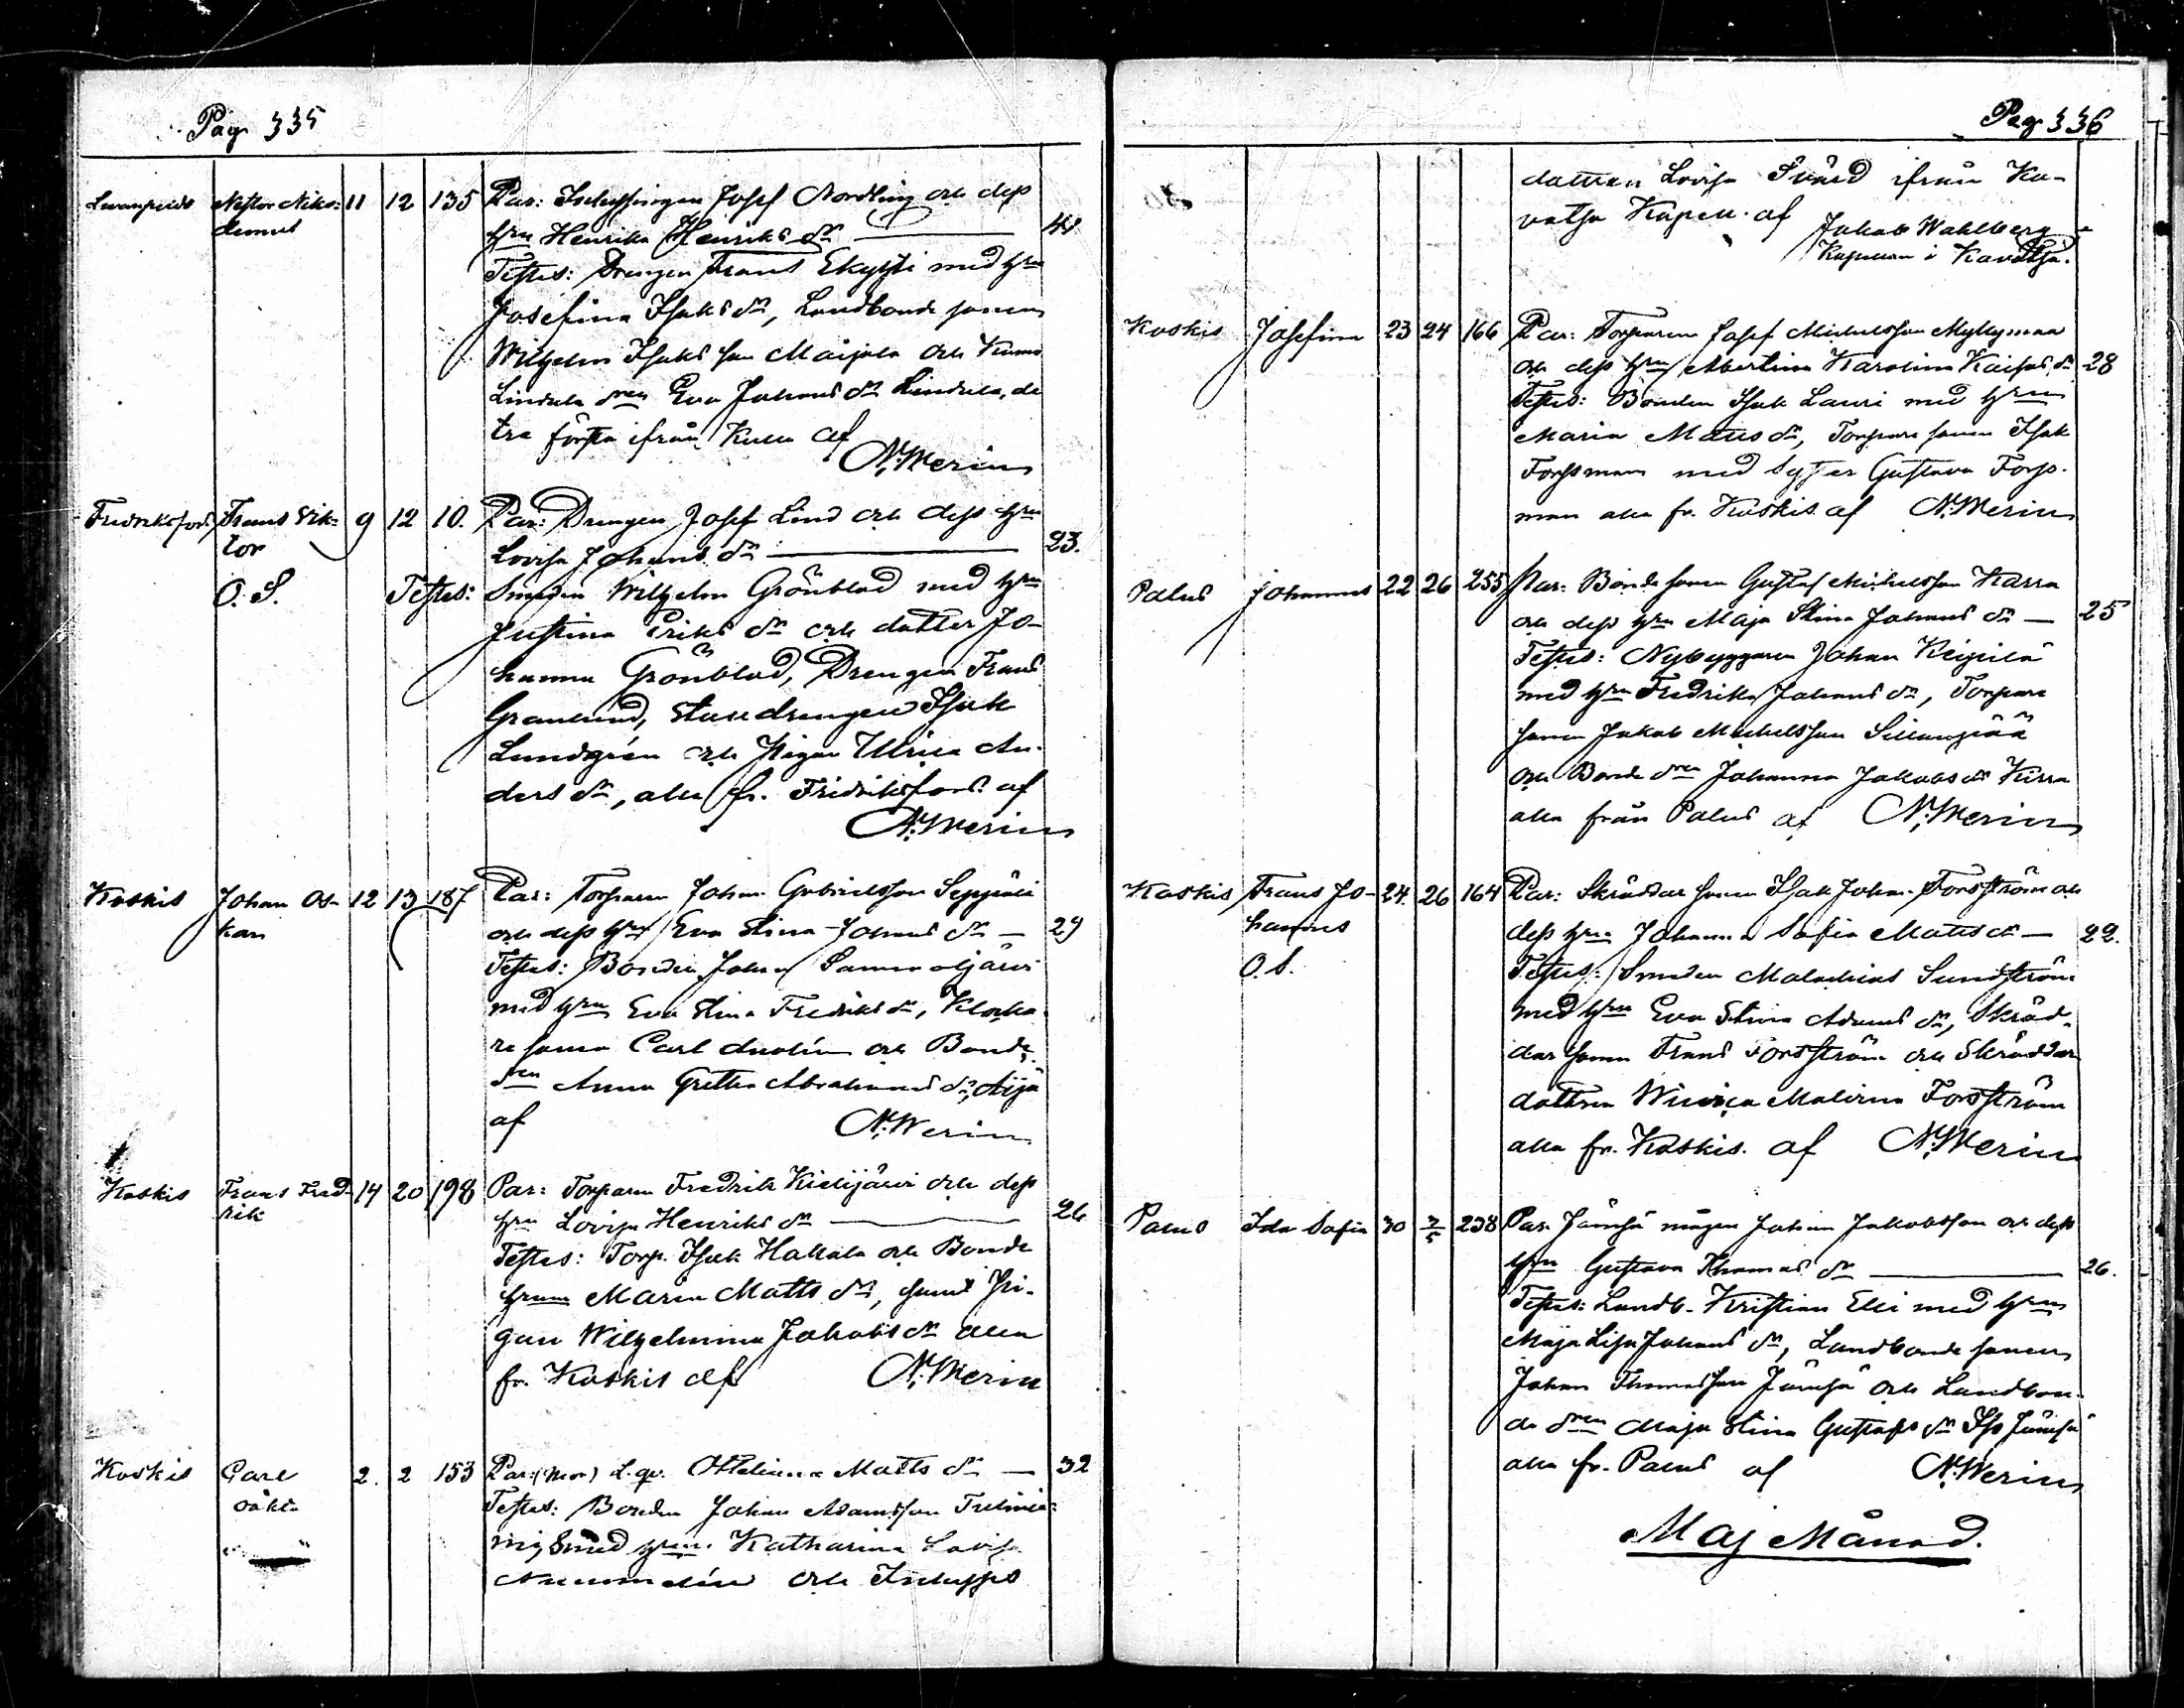 Pag 335
Nestor Niko= 11 12 135 Par: Josef Nordling och dess
demus
hru Henrika Henriks dr 44
Testes: Drengen Frans med hru
Josefina Isaks dr, Landbonde sonen
Wilhelm Isaks son Maijala och
Lindula dren Eva Johans dr Lindula, de
tre första ifrån Kulla af
N. Merius
Fredriksfors Frans Vik= 9 12 10. Par: Drengen Josef Lind och dess hru
tor
Lovisa Johans dr 23.
O. S. Testes: Smeden Wilhelm Grönblad med hru
Justina Eriks dr och dotter Jo-
hanna Grönblad, Drengen Frans
Granlund, Stalldrengen Isak
Lundgrén och Pigan Ulrica An-
ders dr, alla fr. Fredriksfors af
N. Merius
Koskis Johan Os- 12 13 187 Par: Torparen Johan Gabrielsson Seppälä
kar
och dess hru Eva Stina Johans dr — 29
Testes: Bonden Johan
med hru Eva Stina Fredriks dr, Klocka-
re sonen Carl och Bonde
dren Anna Gretha Abrahams dr Äijä
af N. Merius
Koskis Frans Fred- 14 20 198 Par: Torparen Fredrik Kielijärvi och dess
rik
hru Lovisa Henriks dr 26
Testes: Torp. Isak Hakala och Bonde
hrun Maria Matts dr, samt Pi-
gan Wilhelmina Jakobs dr alla
fr. Koskis af N. Merius
Koskis Carl 2. 2 153 Par: (Mor) L. qv. Ottiliana Matts dr — 32
oäkta
Testes: Bonden Johan Adamsson
med hrun. Katharina Lovisa
och Inhyses
Pag 336
dottren Lovisa Svärd ifrån Ka-
vatsa Kapell. af
Jakob Wahlberg
Kapellan i Kavatsa.
Koskis Josefina 23 24 166 Par: Torparen Josef Michelsson Myllymaa
och dess hru Albertina Karolina Kaisas dr 28
Testes: Bonden Isak Lauri med hrun
Maria Matts dr, Torpare sonen Isak
Forssman med syster Gustava Forss-
man alla fr. Koskis af N. Merius
Palus Johannes 22 26 255 Par: Bonde sonen Gustaf Michelsson Karra
och dess hru Maja Stina Johans dr — 25
Testes: Nybyggaren Johan Keipilä
med hru Fredrika Johans dr, Torpare
sonen Jakob Michelsson Sillanpää
och Bonde dren Johanna Jakobs dr Kirra
alla från Palus af N. Merius
Koskis Frans Jo- 24. 26 164 Par: Skräddar sonen Isak Johan Forsström och
hannes
dess hru Johanna Sofia Matts dr — 22.
O. S.
Testes: Smeden Malachias Sundström
med hru Eva Stina Adams dr, Skräd-
dar sonen Frans Forsström och Skräddar
dottren Malvina Forsström
alla fr. Koskis. af N. Merius
Palus Ida Sofia 30 3/5 238 Par. Jämsä mågen Johan Jakobsson och dess
hru Gustava Thomas dr 26.
Testes: Landb. Kristian Elli med hru
Maja Lisa Johans dr, Landbonde sonen
Johan Thomasson Jämsä och Landbon-
de dren Maja Stina Gustafs dr Jämsä
alla fr. Palus af N. Merius
Maj Månad.